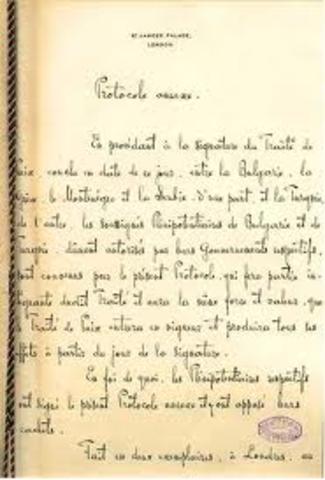 ST JAMES'S PALACE,
LONDON
Protocole annexe.
En procédant à la signature du Traité de
Paix, conclu en date de ce jour, entre la Bulgarie, la
Grèce, le Monténégro et la Serbie, d'une part, et la Turquie,
de l'autre, les soussignés Plénipotentiaires de Bulgarie et de
Turquie, dûment autorisés par leurs Gouvernements respectifs,
sont convenus que le présent Protocole, qui fera partie in-
tégrante dudit Traité et aura la même force et valeur, que
le Traité de Paix entrera en vigueur et produira tous ses
effets à partir du jour de la signature.
En foi de quoi, les Plénipotentiaires respectifs
ont signé le présent Protocole annexe et y ont apposé leurs
cachets.
Fait en deux exemplaires, à Londres, en